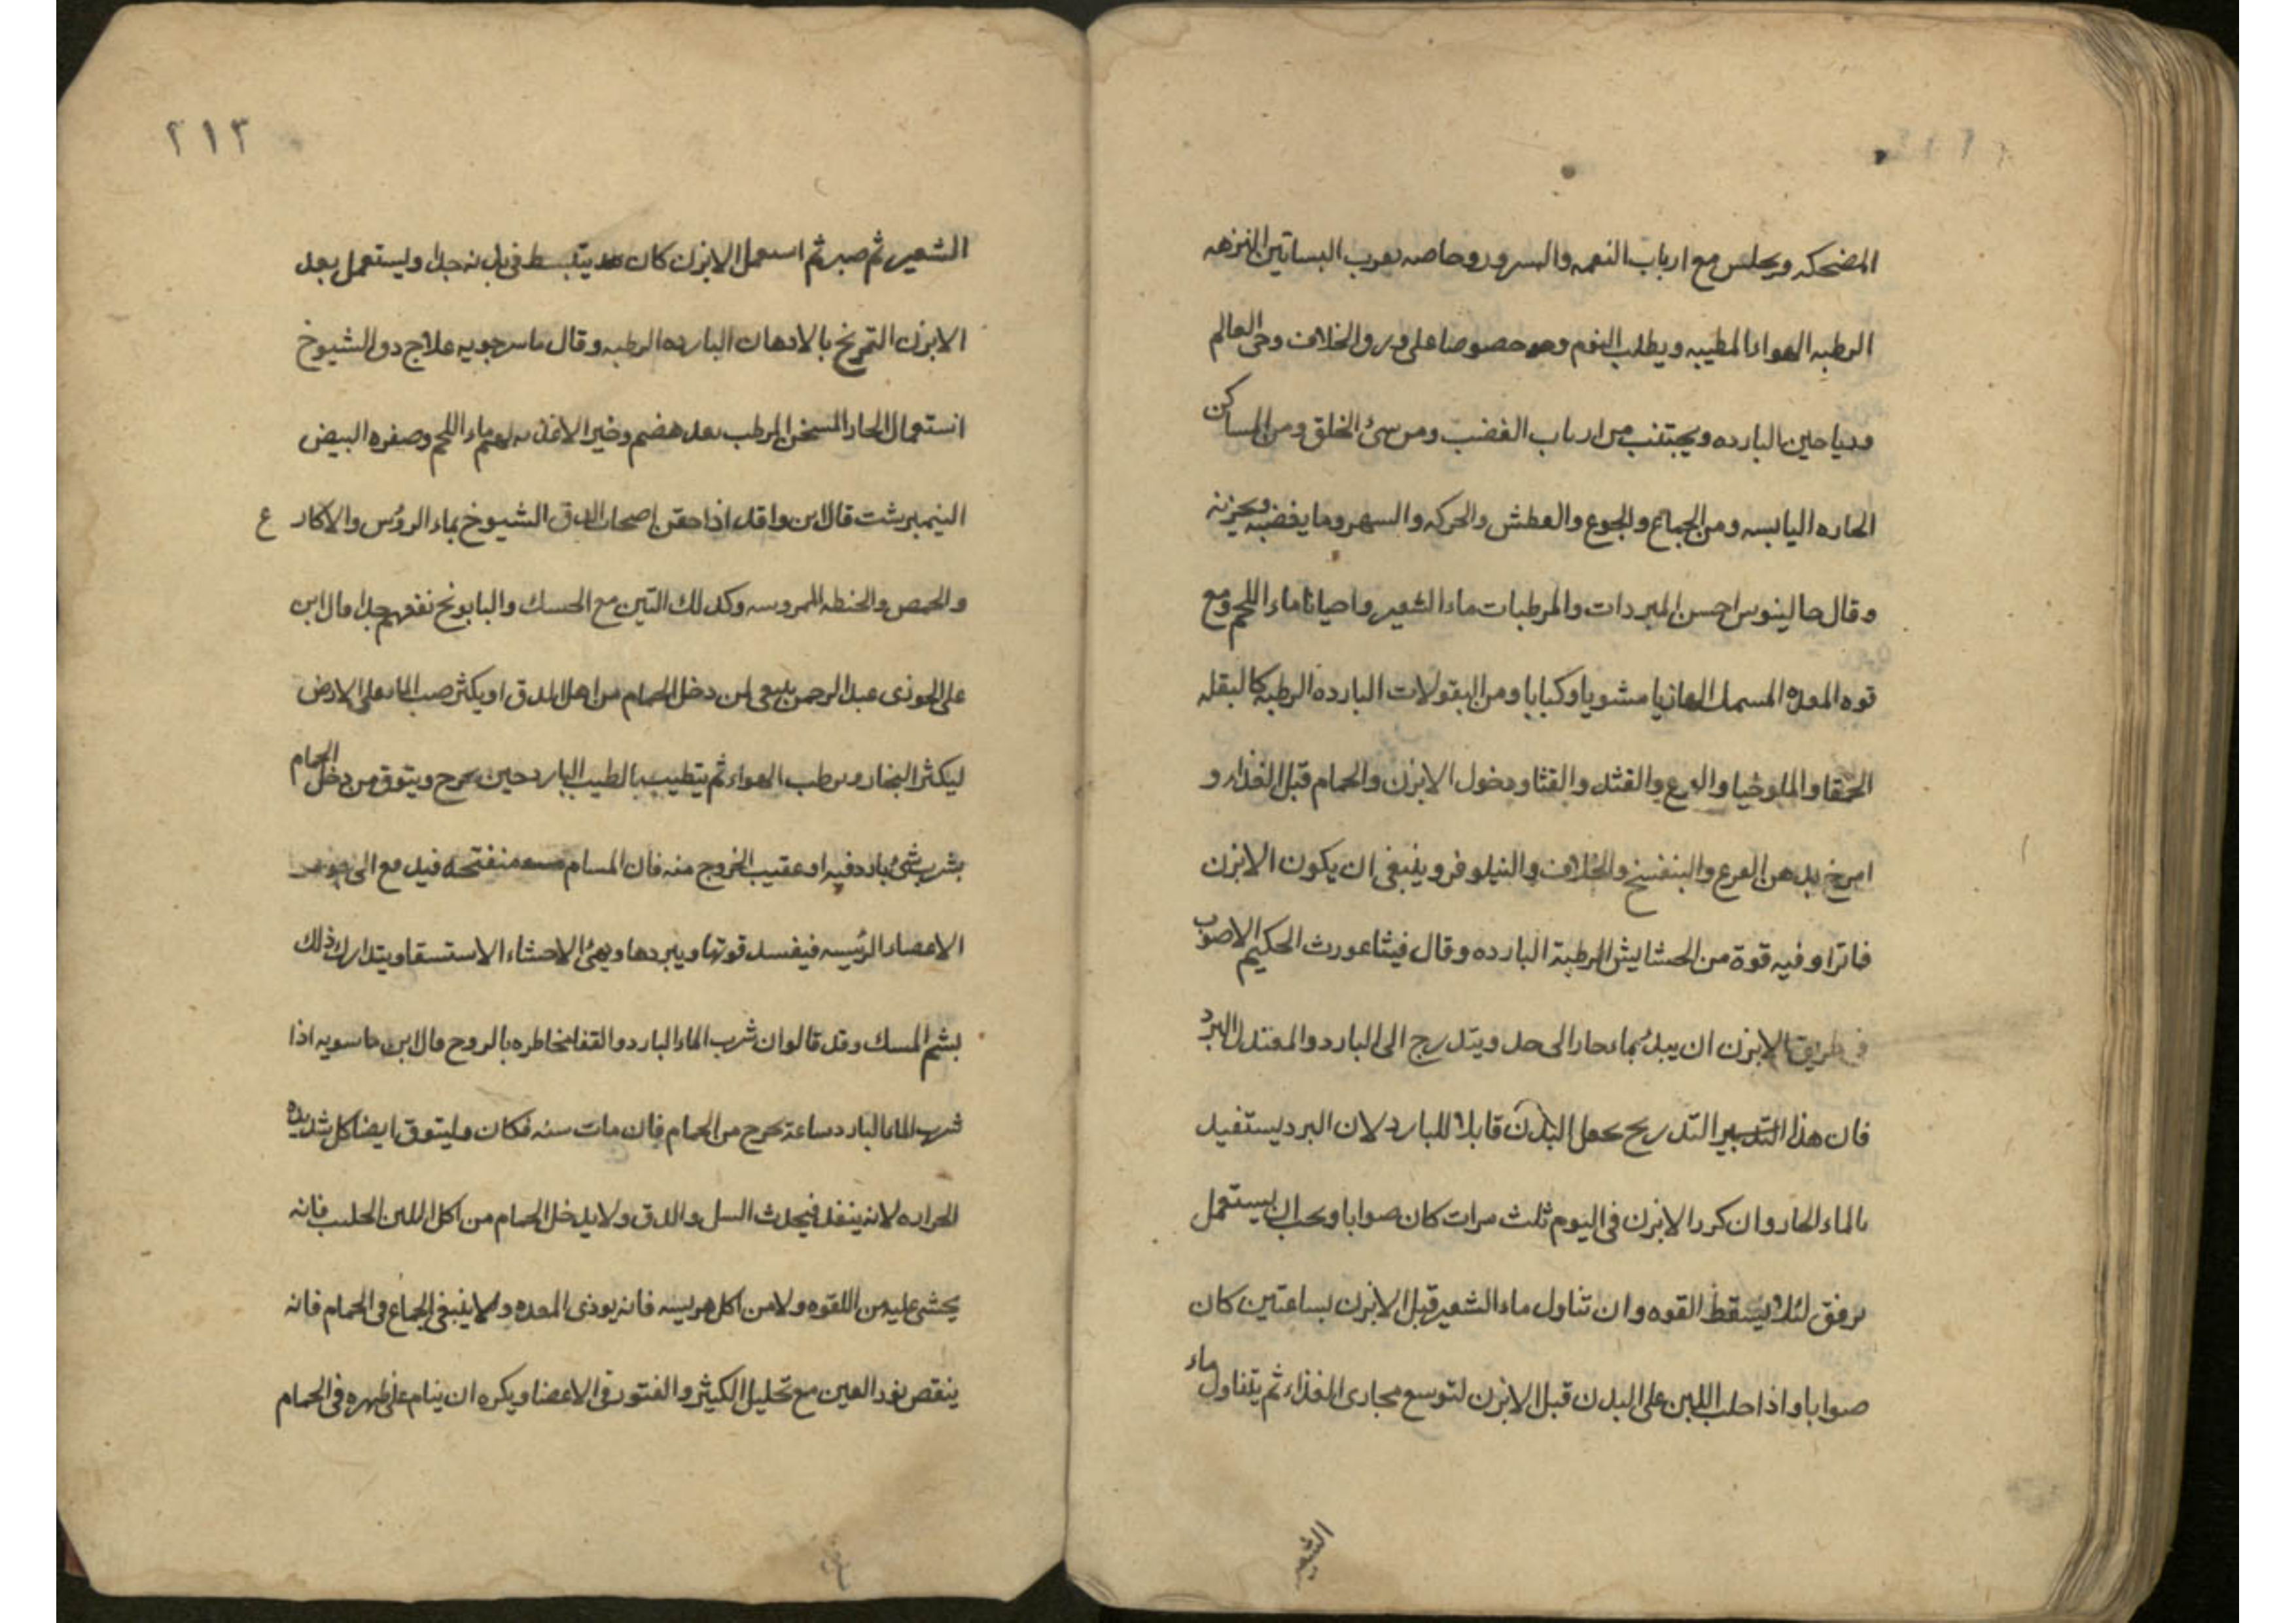 المضحكه ويجلس مع ارباب النعمه والسرور وخاصه بقرب البساتين النزهه
الرطبه الهواء المطيبه ويطلب النوم خصوصا على ورق الخلاف وحى العالم
ورياحين البارده ويجتنب من ارباب الغضب ومن سئ الخلق ومن المساكن
الحاره اليابسه ومن الجماع والجوع والعطش والحركه والسهر وما يغضبه ويحزنه
وقال جالينوس احسن المبردات والمرطبات ماء الشعير واحيانا ماء اللحم ومع
قوه المعده السمك مشويا وكبابا ومن البقولات البارده الرطبه كالبقله
الحمقا والملوخيا والقرع والقثد والقثا ودخول الابزن والحمام قبل الغذاء و
امرخ بدهن القرع والبنفسج والخلاف والنيلوفر وينبغى ان يكون الابزن
فاترا وفيه قوة من الحشايش الرطبة البارده وقال فيثاغورث الحكيم الاصوب
فى طريق الابزن ان يبدئ بماء حار الى حد ويتدرج الى البارد والمعتدل البرد
فان هذا التدبير التدريج يجعل البدن قابلا للبارد لان البرد يستفيد
بالماء الحار وان كرر الابزن فى اليوم ثلث مرات كان صوابا ويجب ان يستعمل
برفق لئلا يسقط القوه وان تناول ماء الشعير قبل الابزن بساعتين كان
صوابا واذا حلب اللبن على البدن قبل الابزن لتوسع مجارى الغذاء ثم يتناول ماء
الشعير
٢١٣
الشعير ثم صبر ثم استعمل الابزن كان يتبسط فى بدنه جدا ويستعمل بعد
الابزن التمريخ بالادهان البارده الرطبه وقال ماسرجويه علاج دق الشيوخ
استعمال الحار المسخن المرطب بعد هضم وخير الاغذيه لهم ماء اللحم وصفره البيض
النيمبرشت قال ابن واقد اذا حقن اصحاب الدق الشيوخ بماء الرؤس والاكارع
والحمص والحنطه المهروسه وكذلك التين مع الحسك والبابونج نفعهم جدا قال ابن
على الجوزى عبد الرحمن ينبغى لمن دخل الحمام من اهل الدق او يكثر صب الماء على الارض
ليكثر البخار ويرطب الهواء ثم يتطيب بالطيب البارد حين يخرج ويتوق من دخل الحمام
بشرب شئ بارد فيه او عقيب الخروج منه فان المسام منفتحه فيدفع الى
الاعضاء الرئيسه فيفسد قوتها ويبردها ويهئ الاحشاء الاستسقا ويتدارك ذلك
بشم المسك وقد قالوا ان شرب الماء البارد والقفا مخاطره بالروح قال ابن ماسويه اذا
شرب الماء البارد ساعة يخرج من الحمام فان مات سنه فكان وليتوق ايضا كل شديده
الحراره لانه ينفذ فيحدث السل والدق ولا يدخل الحمام من اكل اللبن الحليب فانه
يخشى عليه من اللقوه ولا من اكل هريسه فانه يوذى المعده ولا ينبغى الجماع فى الحمام فانه
ينقص نور العين مع تحليل الكثير والفتور فى الاعضا ويكره ان ينام على ظهره فى الحمام